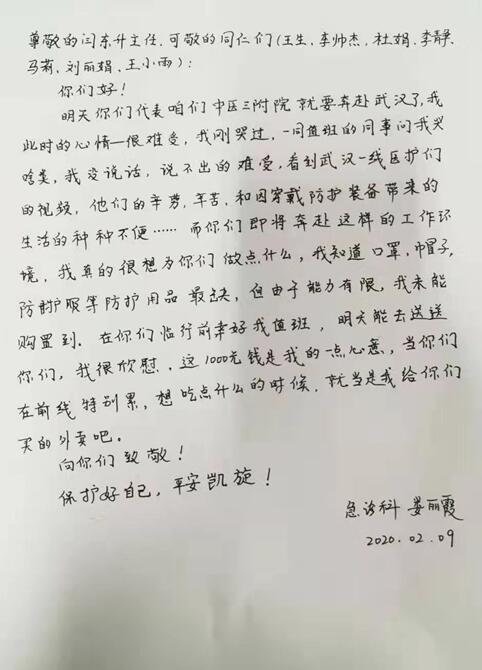 尊敬的闫东升主任、可敬的同仁们(王生、李帅杰、杜娟、李静、
马莉、刘丽娟、王小雨):
你们好!
明天你们代表咱们中医三附院就要奔赴武汉了,我
此时的心情一很难受,我刚哭过,一同值班的同事问我哭
啥类,我没说话,说不出的难受,看到武汉一线医护们
的视频,他们的辛劳、辛苦、和因穿戴防护装备带来的
生活的种种不便……而你们即将奔赴这样的工作环
境,我真的很想为你们做点什么,我知道口罩、帽子、
防护服等防护用品最缺,但由于能力有限,我未能
购置到。在你们临行前幸好我值班,明天能去送送
你们,我很欣慰,这1000元钱是我的一点心意,当你们
在前线特别累,想吃点什么的时候,就当是我给你们
买的外卖吧。
向你们致敬!
保护好自己,平安凯旋!
急诊科 娄丽霞
2020.02.09